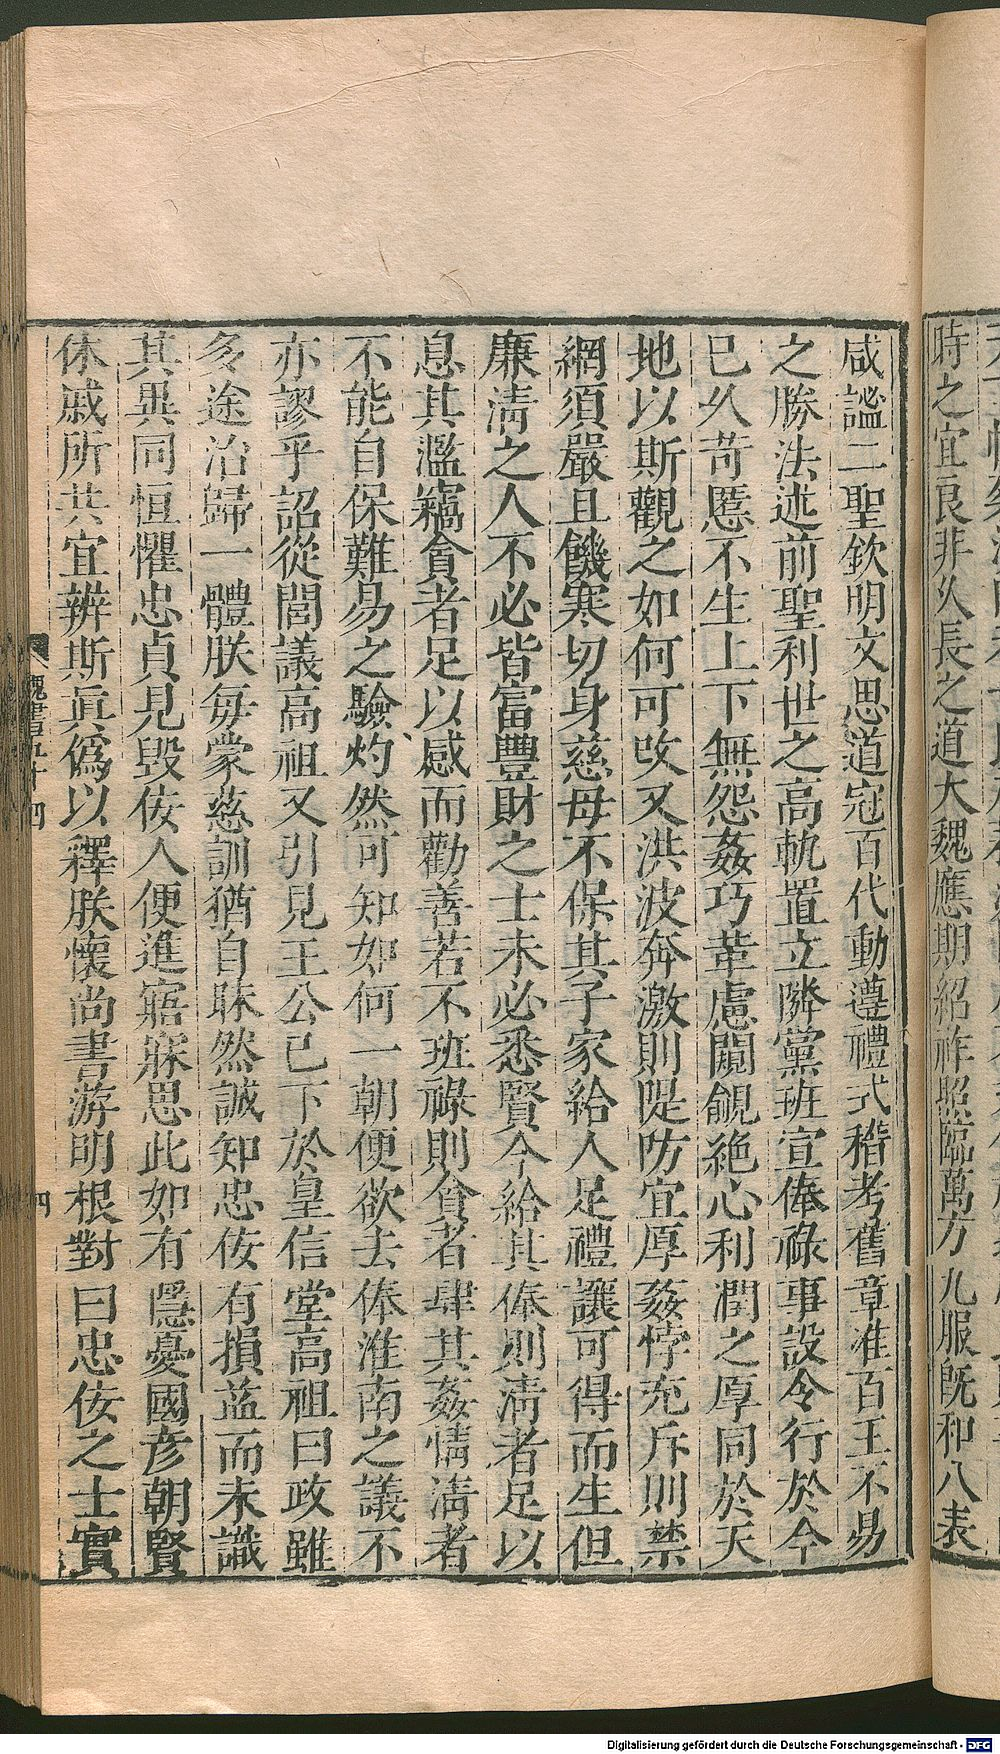 時之宜良非久長之道大魏應期紹祚照臨萬方九服旣和八表
咸謐二聖欽明文思道冠百代動遵禮式稽考舊章准百王不易
之勝法述前聖利世之高軌置立隣黨班宣俸祿事設令行於今
已久苛慝不生上下無怨姦巧革慮闚覦絶心利潤之厚同於天
地以斯觀之如何可改又洪波奔激則隄防宜厚姦悖充斥則禁
網須嚴且饑寒切身慈母不保其子家給人足禮讓可得而生但
廉淸之人不必皆富豐財之士未必悉賢今給其俸則淸者足以
息其濫竊貪者足以感而勸善若不班祿則貪者肆其姦情淸者
不能自保難易之驗灼然可知如何一朝便欲去俸淮南之議不
亦謬乎詔從閭議高祖又引見王公已下於皇信堂高祖曰政雖
多途治歸一體朕每蒙慈訓猶自昧然誠知忠佞有損益而未識
其異同恒懼忠貞見毀佞人便進寤寐思此如有隱憂國彦朝賢
休戚所共宜辨斯眞僞以釋朕懷尚書游明根對曰忠佞之士實
魏書五十四
四
Digitalisierung gefördert durch die Deutsche Forschungsgemeinschaft - DFG